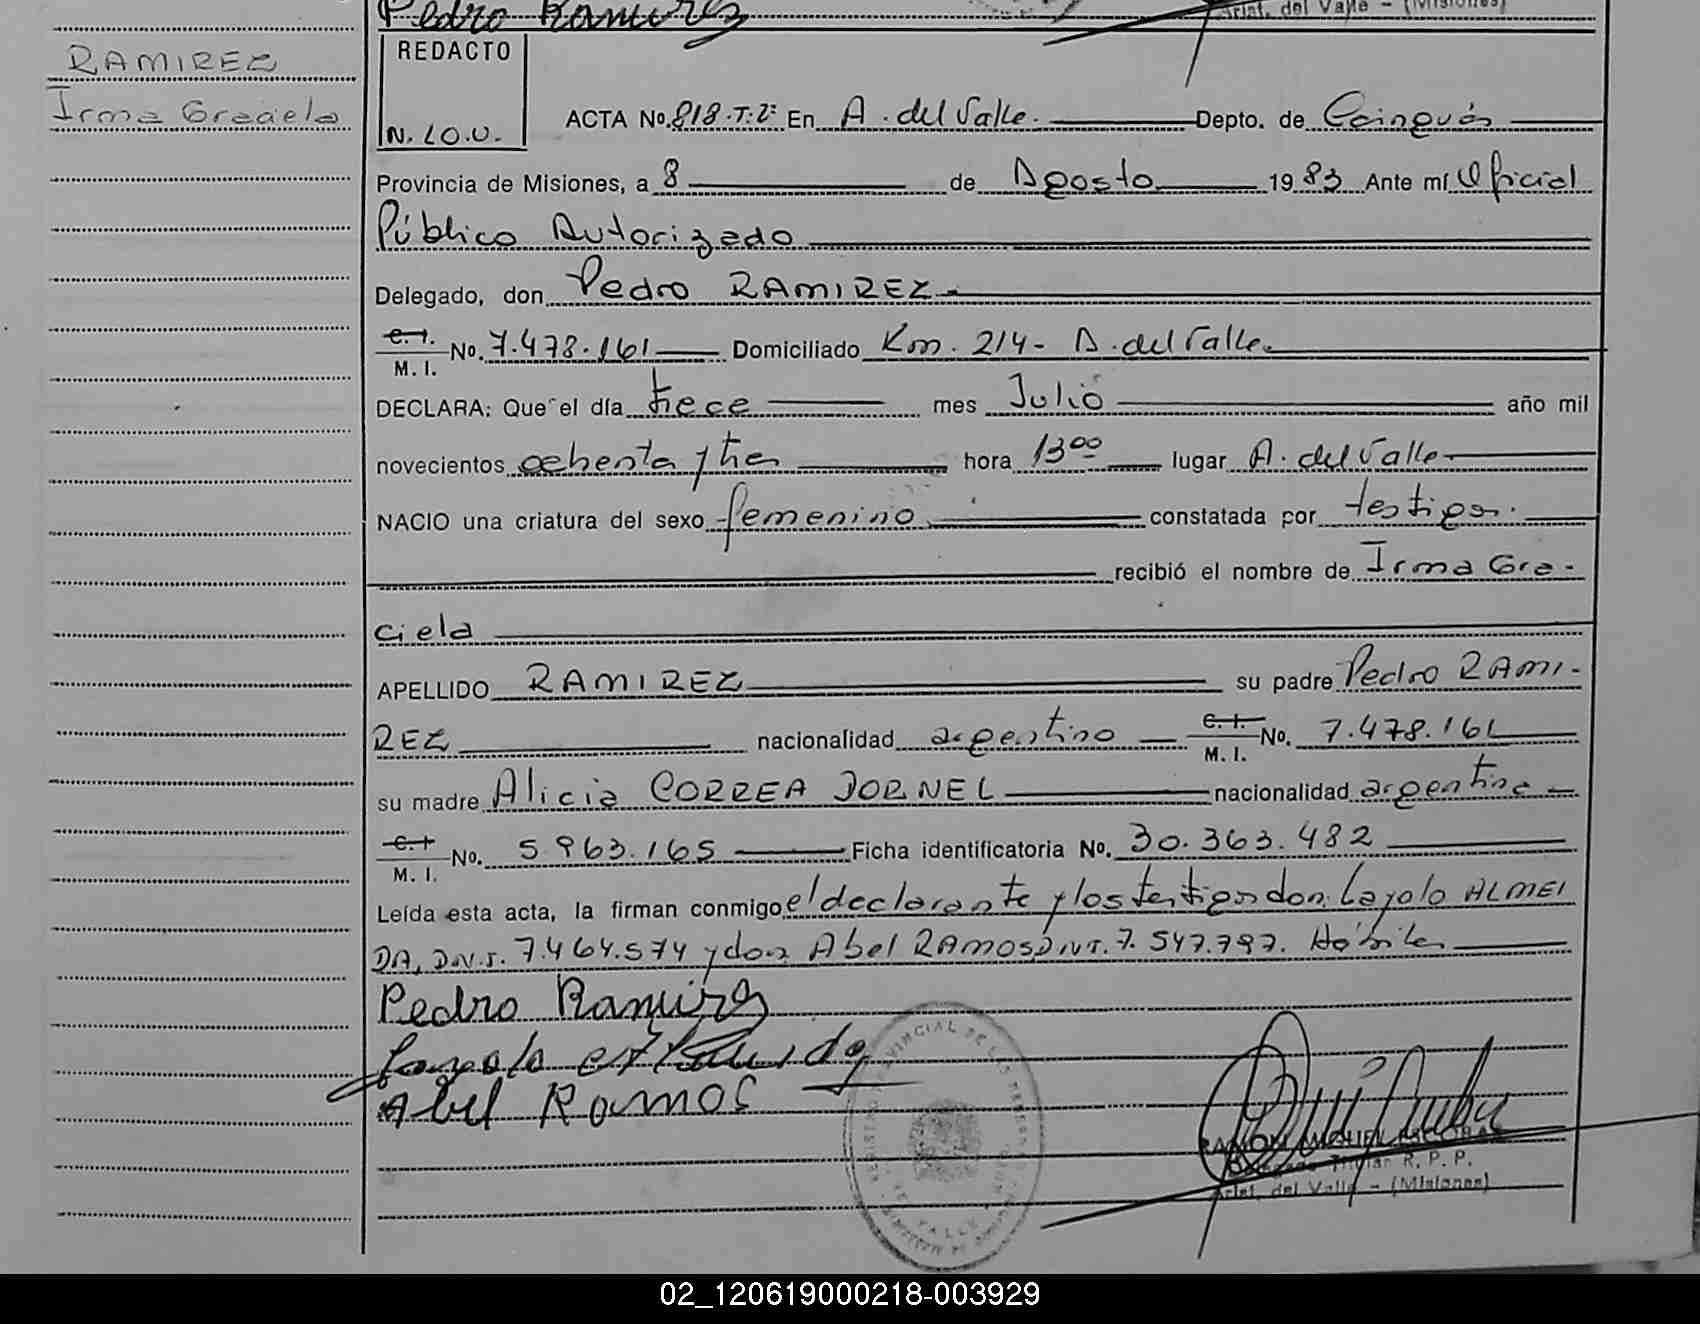 Pedro Ramirez
Arist. del Valle - (Misiones)
RAMIREZ
Irma Graciela
REDACTO
N. LO.U.
ACTA No. 818.T.2º En A. del Valle. Depto. de Cainguás
Provincia de Misiones, a 8 de Agosto 1983 Ante mí Oficial
Público Autorizado
Delegado, don Pedro RAMIREZ
C. I. M. I. No. 7.478.161 Domiciliado Km. 214 - A. del Valle.
DECLARA: Que el día trece mes Julio año mil
novecientos ochenta y tres hora 1300 lugar A. del Valle
NACIO una criatura del sexo femenino constatada por testigos.
recibió el nombre de Irma Gra-
ciela
APELLIDO RAMIREZ su padre Pedro RAMI-
REZ nacionalidad argentino C. I. M. I. No. 7.478.161
su madre Alicia CORREA DORNEL nacionalidad argentina
C. I. M. I. No. 5.963.165 Ficha identificatoria No. 30.363.482
Leída esta acta, la firman conmigo el declarante y los testigos don Layolo ALMEI
DA, D.N.I. 7.464.574 y don Abel RAMOS D.N.I. 7.547.797. Hábiles
Pedro Ramirez
Abel Ramos
RAMON MIGUEL ESCOBAR
R. P. P.
Arist. del Valle - (Misiones)
02_120619000218-003929